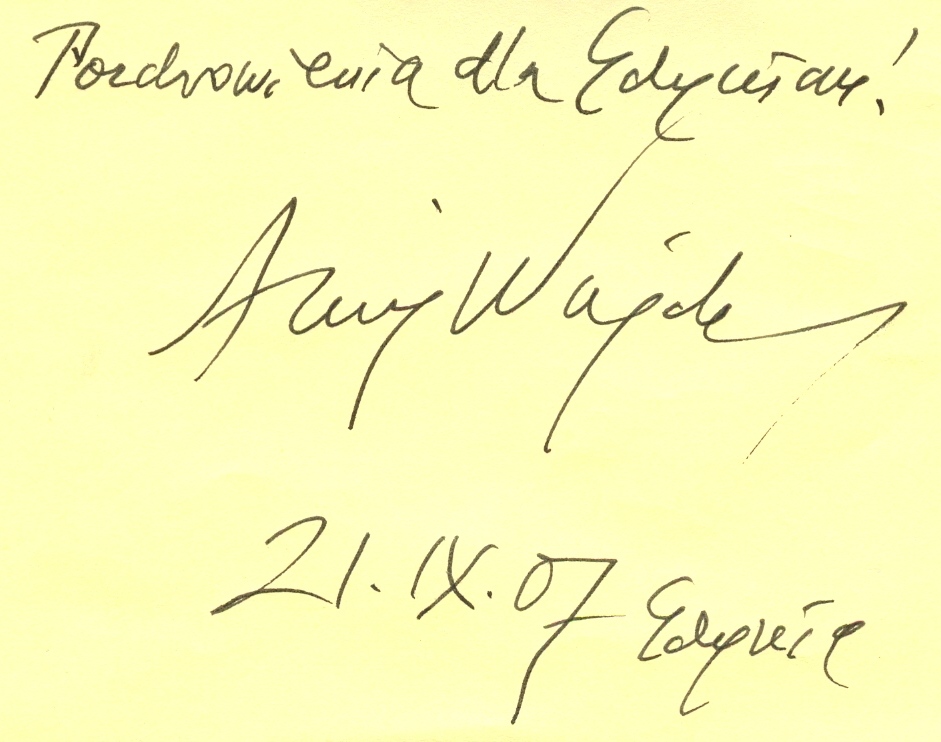 Pozdrowienia dla Gdynian!
Andrzej Wajda
21.IX.07 Gdynia